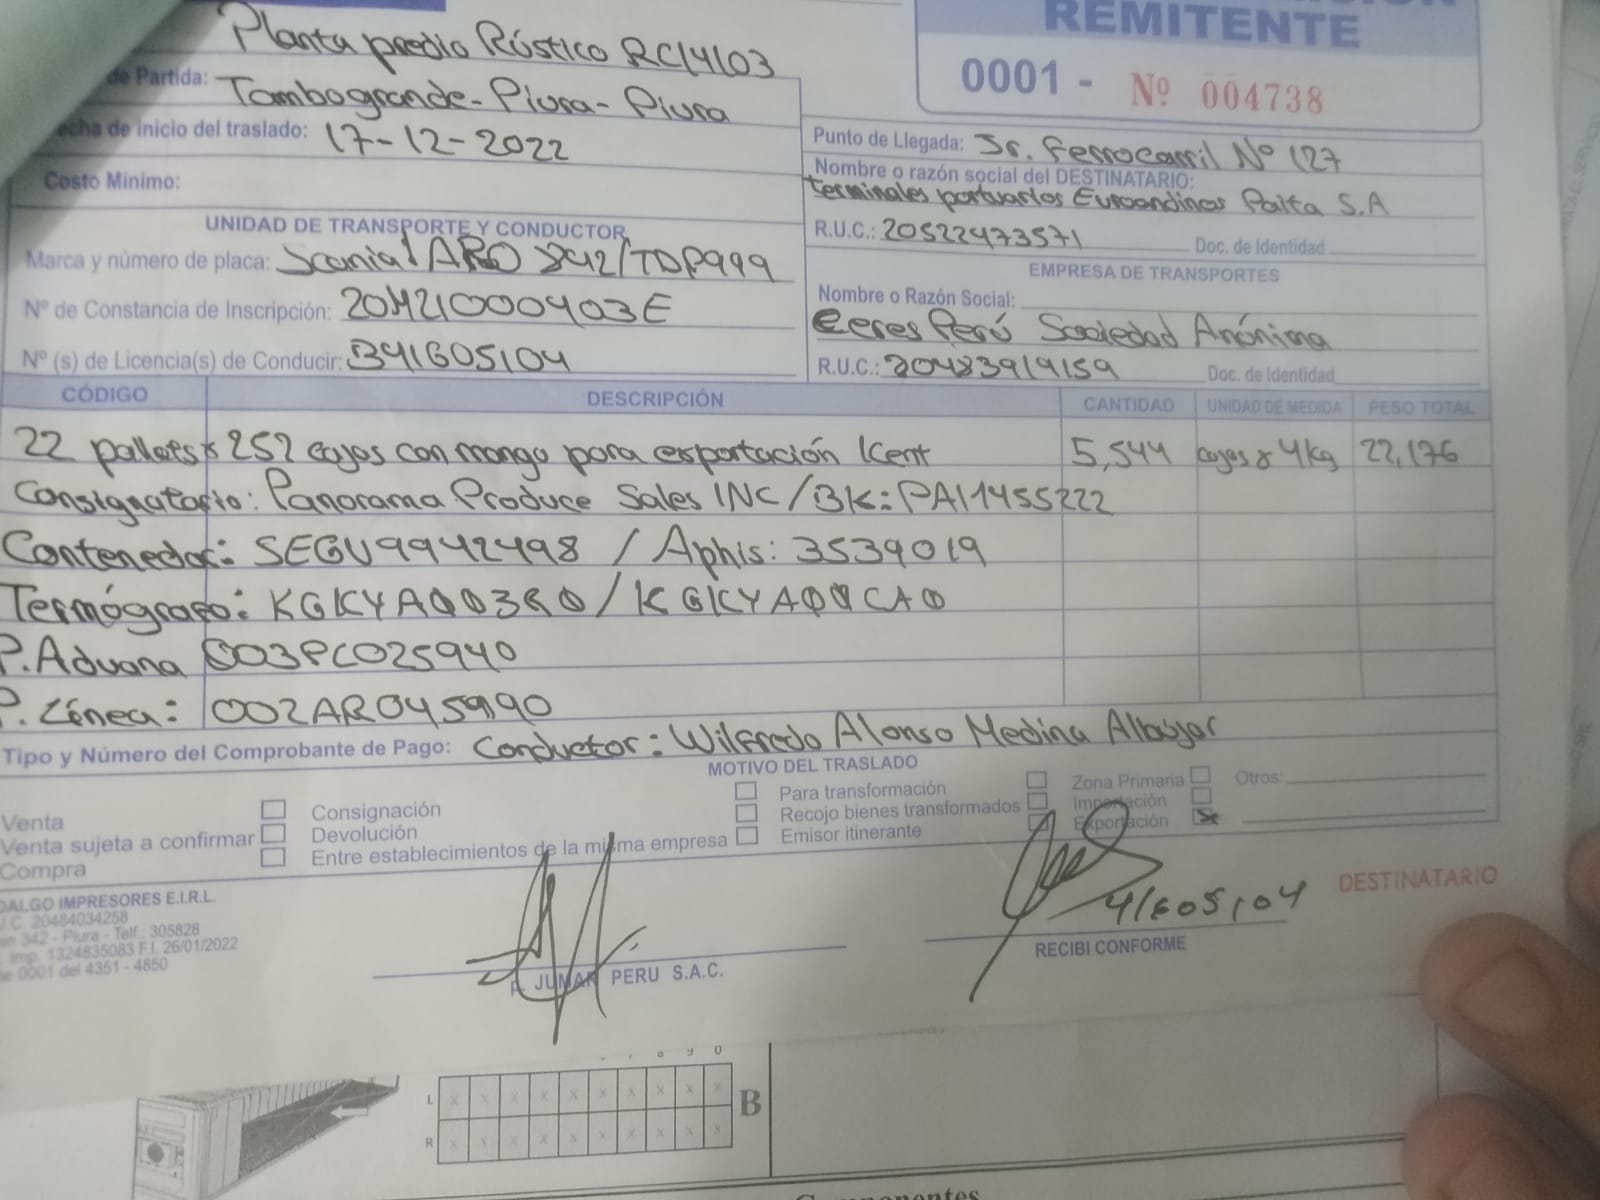 REMITENTE
0001 - Nº 004738
Planta predio Rústico RC14103
de Partida: Tambogrande - Piura - Piura
echa de inicio del traslado: 17-12-2022
Costo Minimo:
Punto de Llegada: Jr. Ferrocarril Nº 127
Nombre o razón social del DESTINATARIO:
terminales portuarios Euroandinos Paita S.A
R.U.C.: 20522473571 Doc. de Identidad
UNIDAD DE TRANSPORTE Y CONDUCTOR
Marca y número de placa: Scania / ARO 842/TDP999
Nº de Constancia de Inscripción: 20M21000403E
Nº (s) de Licencia(s) de Conducir: B41605104
EMPRESA DE TRANSPORTES
Nombre o Razón Social:
Ceres Perú Sociedad Anónima
R.U.C.: 20483919159 Doc. de Identidad
CÓDIGO DESCRIPCIÓN CANTIDAD UNIDAD DE MEDIDA PESO TOTAL
22 pallets x 252 cajas con mango para exportación Kent 5,544 cajas x 4kg 22,176
Consignatario: Panorama Produce Sales INC / BK: PAI1455222
Contenedor: SEGU9942498 / Aphis: 3539019
Termógrafo: KGKYA003R0 / KGKYA00CA0
P. Aduana 003PC025940
P. Línea: 002AR045990
Tipo y Número del Comprobante de Pago: Conductor: Wilfredo Alonso Medina Albújar
MOTIVO DEL TRASLADO
Venta Consignación Para transformación Zona Primaria Otros:
Venta sujeta a confirmar Devolución Recojo bienes transformados Importación
Compra Entre establecimientos de la misma empresa Emisor itinerante Exportación x
DALGO IMPRESORES E.I.R.L.
U.C. 20484034258
342 - Piura - Telf.: 305828
Imp. 1324835083 F.I. 26/01/2022
0001 del 4351 - 4850
JUMAR PERU S.A.C.
41605104
RECIBI CONFORME
DESTINATARIO
L x x x x x x x x x x
R x x x x x x x x x x
B